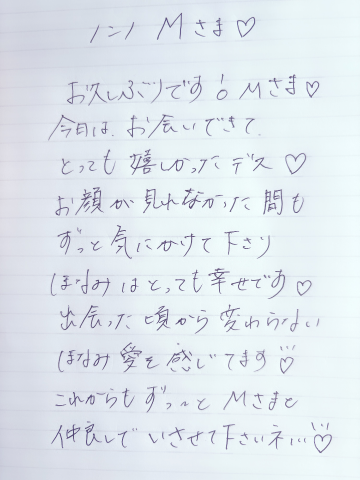 M さま♡
お久しぶりです! Mさま♡
今日は、お会いできて、
とっても 嬉しかった デス ♡
お顔が 見れなかった 間も
ずっと 気にかけて 下さり
ほなみ はとっても 幸せです♡
出会った 頃から 変わらない
ほなみ 愛を 感じてます♡
これからも ずっ〜と Mさまと
仲良しで いさせて 下さいネ…♡